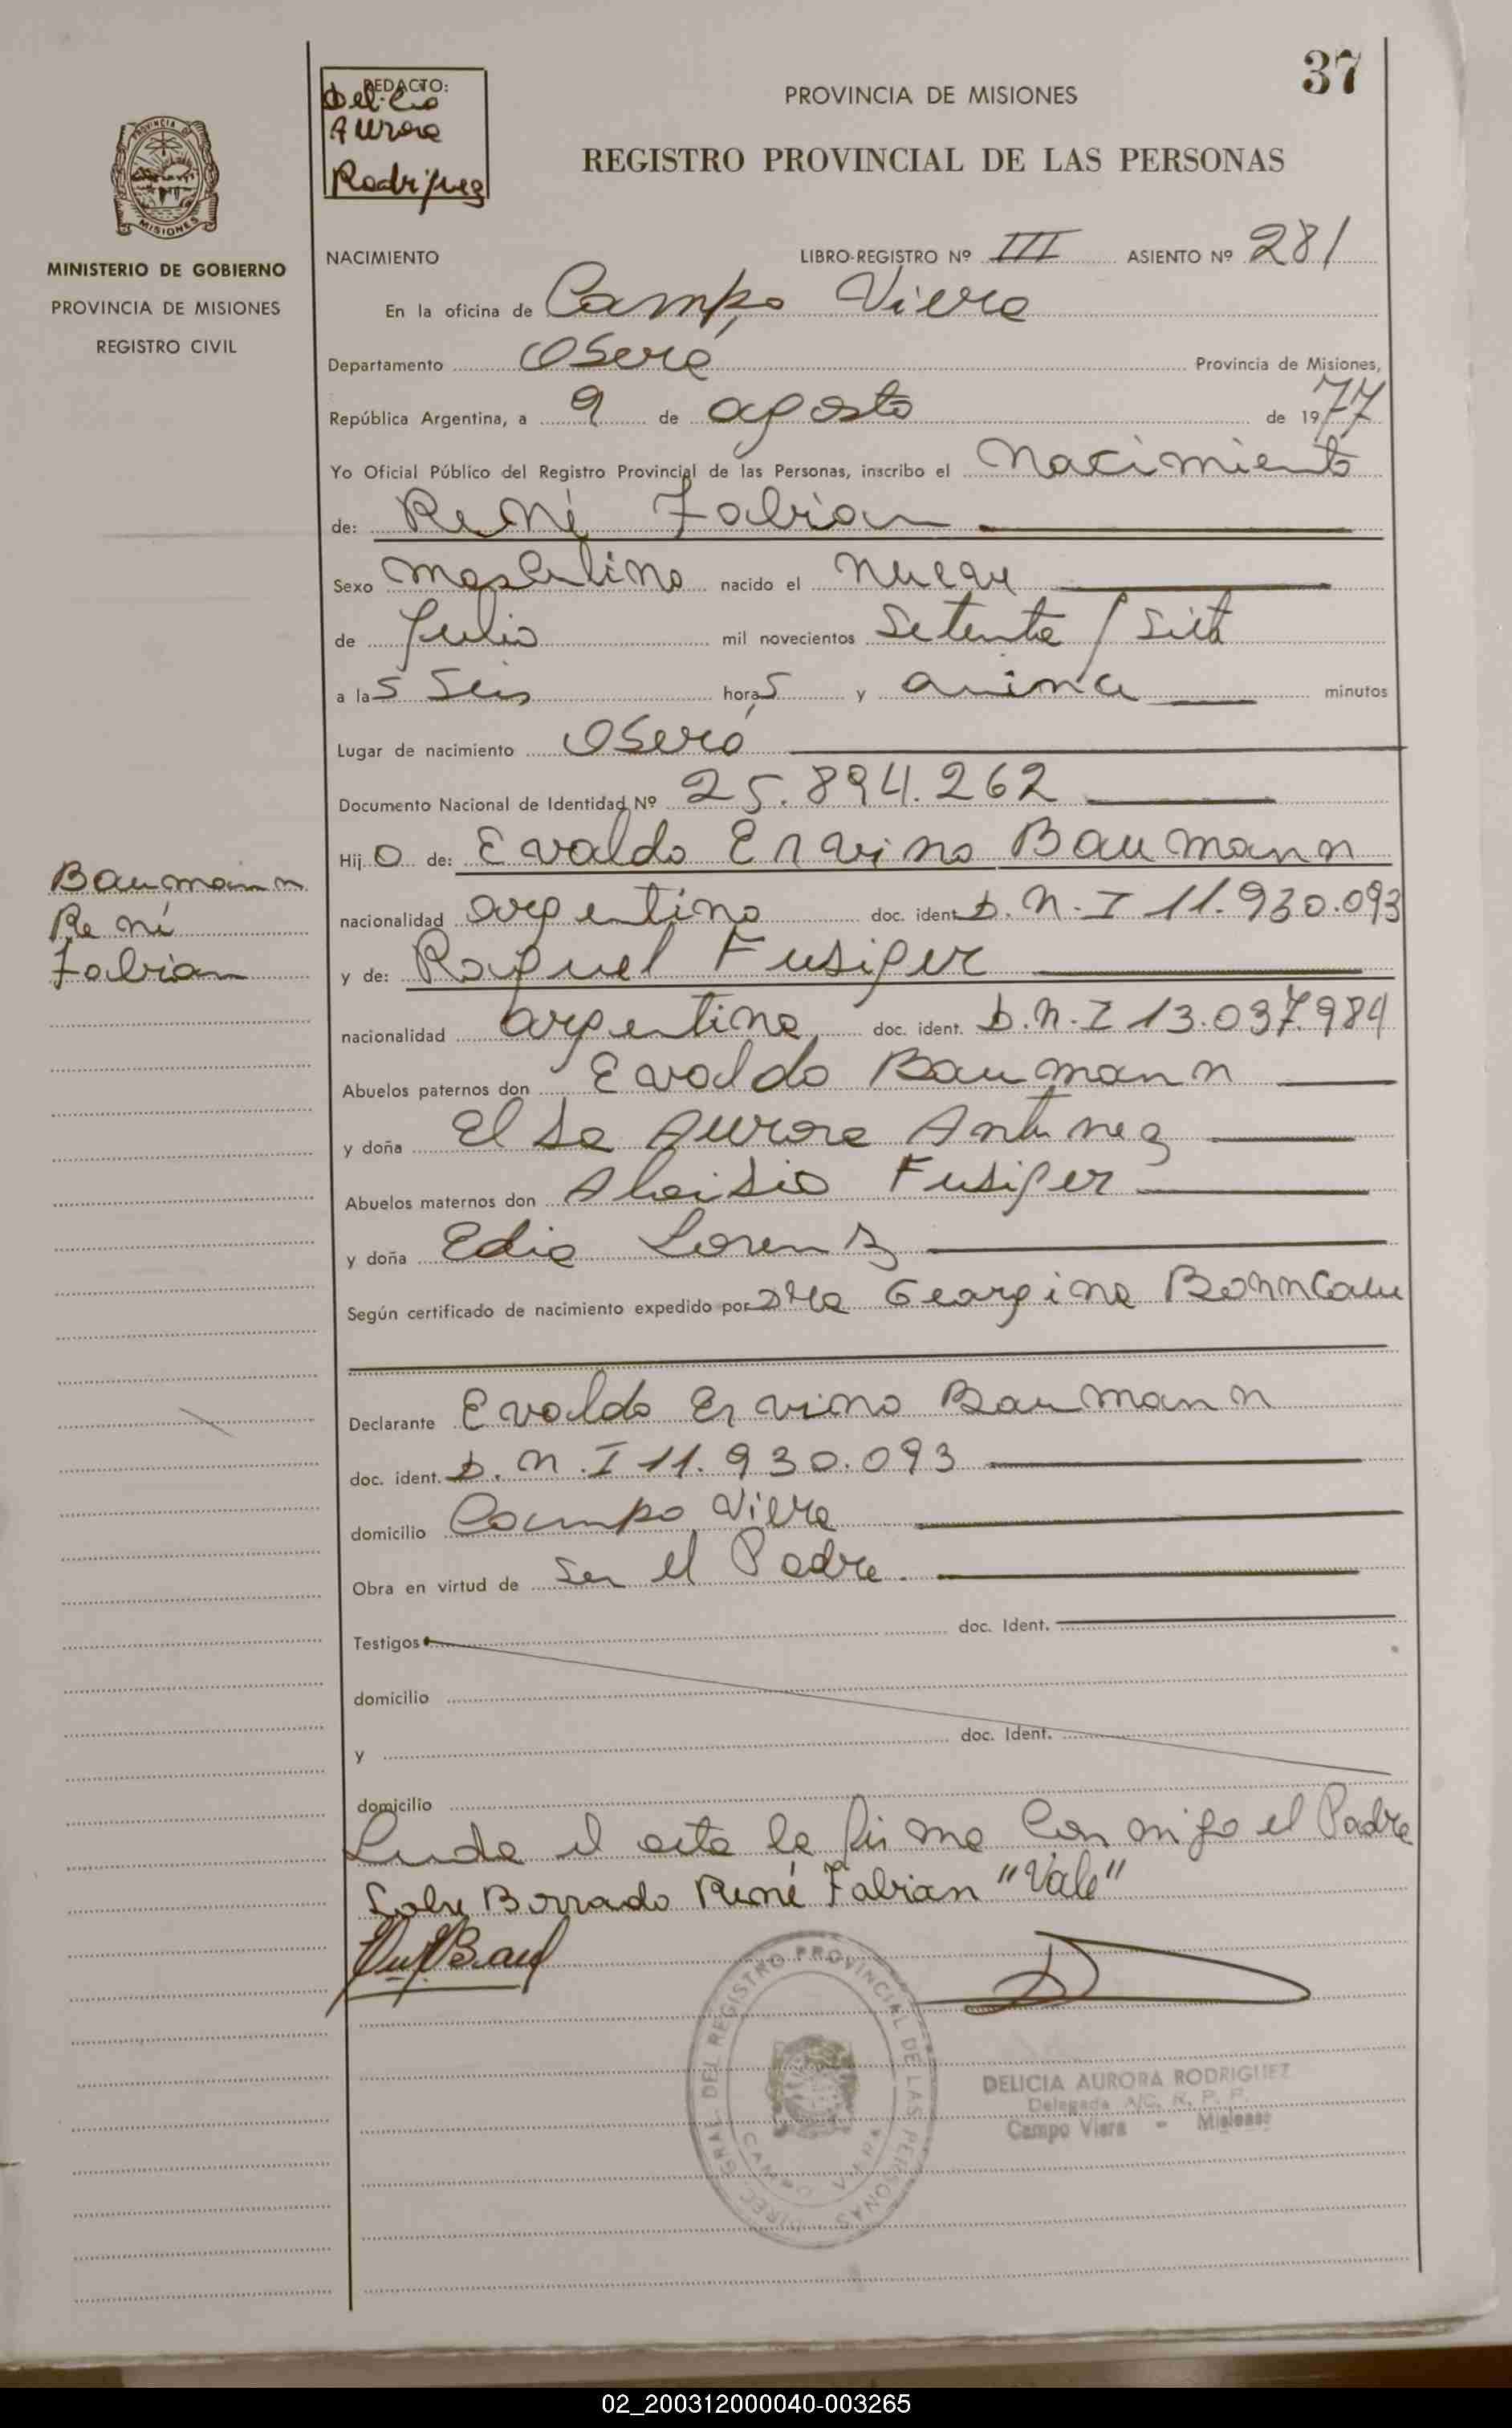 37
REDACTO:
Delicia
Aurora
Rodriguez
PROVINCIA DE MISIONES
REGISTRO PROVINCIAL DE LAS PERSONAS
PROVINCIA DE MISIONES
MINISTERIO DE GOBIERNO
PROVINCIA DE MISIONES
REGISTRO CIVIL
NACIMIENTO LIBRO-REGISTRO Nº III ASIENTO Nº 281
En la oficina de Campo Viera
Departamento Oberá Provincia de Misiones,
República Argentina, a 9 de agosto de 1977
Yo Oficial Público del Registro Provincial de las Personas, inscribo el Nacimiento
de: René Fabian
Sexo masculino nacido el nueve
de Julio mil novecientos Setenta y Siete
a las Seis horas y minutos
Lugar de nacimiento Oberá
Documento Nacional de Identidad Nº 25.894.262
Hijo de: Evaldo Ervino Baumann
nacionalidad argentino doc. ident. D.N.I 11.930.093
y de: Raquel Fusiger
nacionalidad argentina doc. ident. D.N.I 13.037.984
Abuelos paternos don Evaldo Baumann
y doña Elsa Aurora Antunez
Abuelos maternos don Aloisio Fusiger
y doña Edia Lorenz
Según certificado de nacimiento expedido por Dra Georgina
Declarante Evaldo Ervino Baumann
doc. ident. D.N.I 11.930.093
domicilio Campo Viera
Obra en virtud de ser el Padre.
Testigos doc. Ident.
domicilio
y doc. Ident.
domicilio
Leida el acta la firma conmigo el Padre
Sobre Borrado René Fabian "Vale"
Baumann
René
Fabian
DIREC. GRAL. DEL REGISTRO PROVINCIAL DE LAS PERSONAS
CAMPO VIERA
DELICIA AURORA RODRIGUEZ
Delegada A/C. R. P. P.
Campo Viera - Misiones
02_200312000040-003265